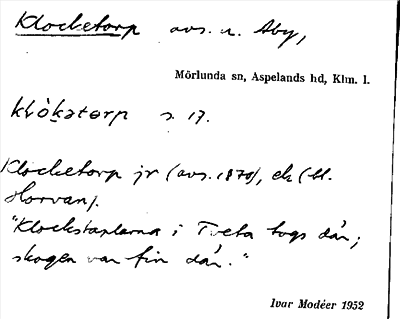 Klocketorp avs. u. Åby,
Mörlunda sn, Aspelands hd, Klm. l.
klòkətorp s. 17.
Klocketorp jr (avs. 1870), ek (tl.
Horvan).
"Klockstaplarna i Tveta togs där;
skogen var fin där."
Ivar Modéer 1952